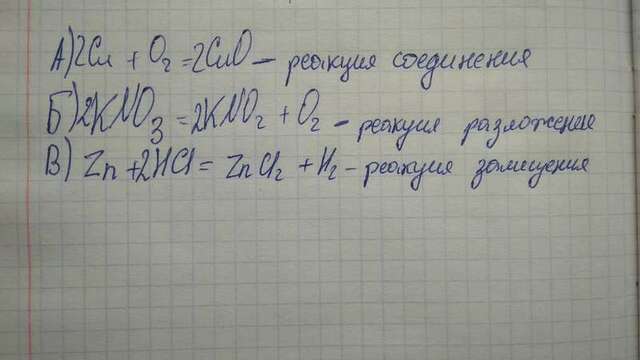 А) 2Cu + O₂ = 2CuO – реакция соединения
Б) 2KNO₃ = 2KNO₂ + O₂ – реакция разложение
В) Zn + 2HCl = ZnCl₂ + H₂ – реакция замещения